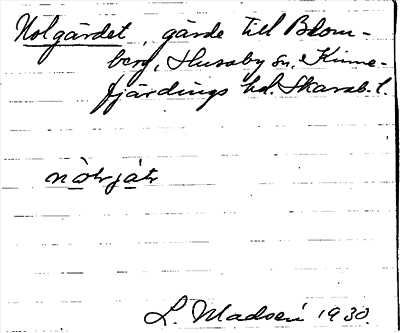 Nolgärdet, gärde till Blom-
berg, Husaby sn. Kinne-
fjärdings hd. Skarab. l.
L. Madsén 1930.